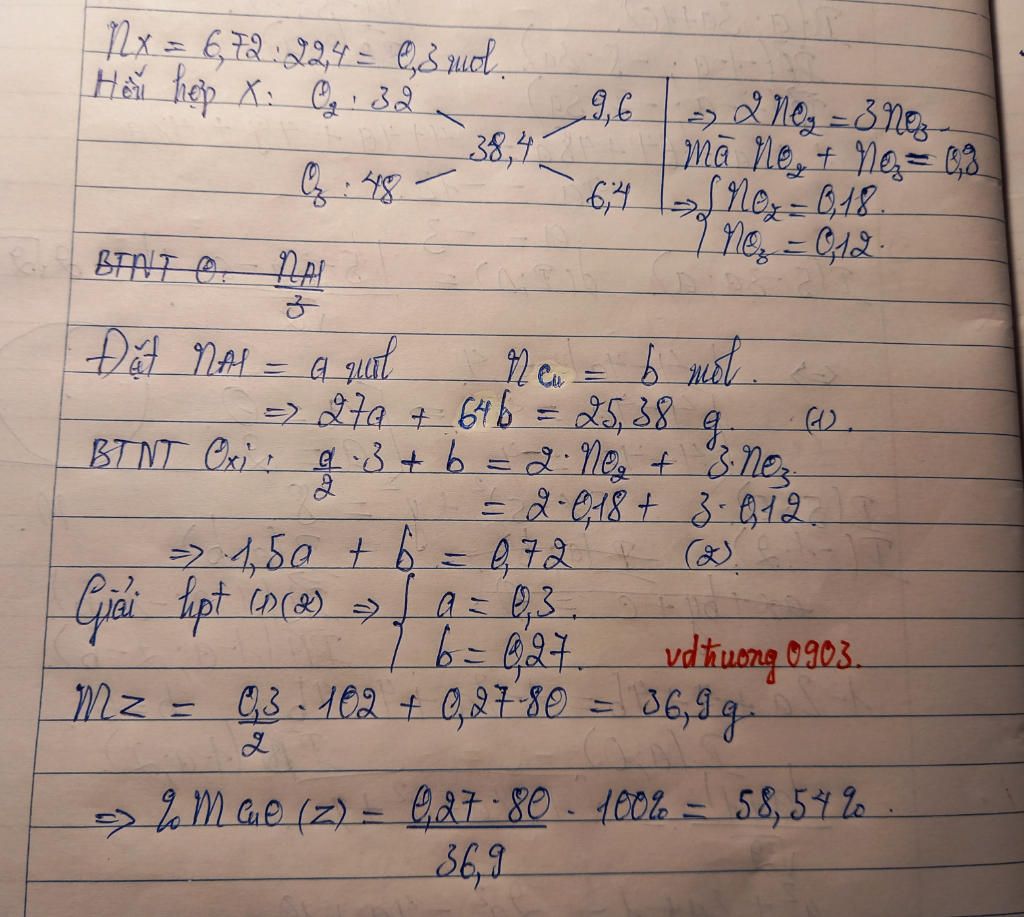 nx = 6,72 : 22,4 = 0,3 mol.
Hỗn hợp X: O₂ : 32 9,6
38,4
O₃ : 48 6,4
=> 2nO₂ = 3nO₃.
mà nO₂ + nO₃ = 0,3
=> { nO₂ = 0,18.
nO₃ = 0,12.
BTNT O: nAl/3
Đặt nAl = a mol nCu = b mol.
=> 27a + 64b = 25,38 g. (1).
BTNT Oxi: a/2 · 3 + b = 2·nO₂ + 3·nO₃.
= 2·0,18 + 3·0,12.
=> 1,5a + b = 0,72 (2).
Giải hpt (1)(2) => { a = 0,3.
b = 0,27.
vdhuong0903.
mz = 0,3/2 · 102 + 0,27·80 = 36,9g.
=> %mCuO (Z) = 0,27·80/36,9 · 100% = 58,54%.